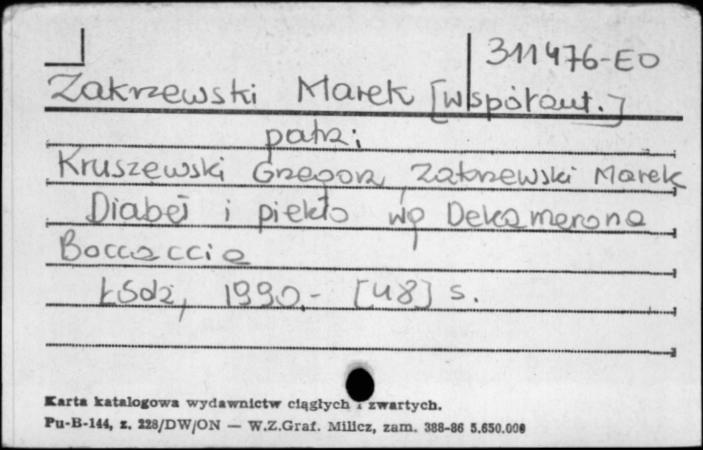 311476-EO
Zakrzewski Marek [współaut.]
patrz:
Kruszewski Grzegorz, Zakrzewski Marek
Diabeł i piekło wg Dekamerona
Boccaccia
Łódź, 1990.- [48] s.
Karta katalogowa wydawnictw ciągłych i zwartych.
Pu-B-144, z. 228/DW/ON — W.Z.Graf. Milicz, zam. 388-86 5.650.000